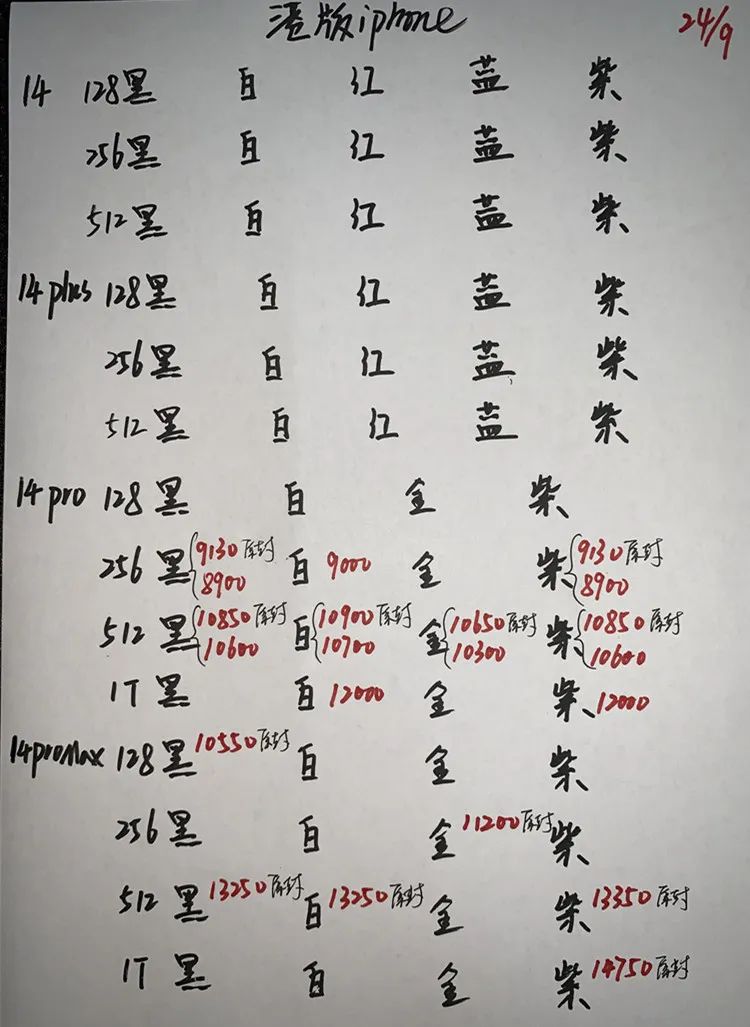 港版iphone 24/9
14 128黑 白 红 蓝 紫
256黑 白 红 蓝 紫
512黑 白 红 蓝 紫
14plus 128黑 白 红 蓝 紫
256黑 白 红 蓝 紫
512黑 白 红 蓝 紫
14pro 128黑 白 金 紫
256黑 9130原封 8900 白 9000 金 紫 9130原封 8900
512黑 10850原封 10600 白 10900原封 10700 金 10650原封 10300 紫 10850原封 10600
1T黑 白 12000 金 紫 12000
14proMax 128黑 10550原封 白 金 紫
256黑 白 金 11200原封 紫
512黑 13250原封 白 13250原封 金 紫 13350原封
1T黑 白 金 紫 14750原封